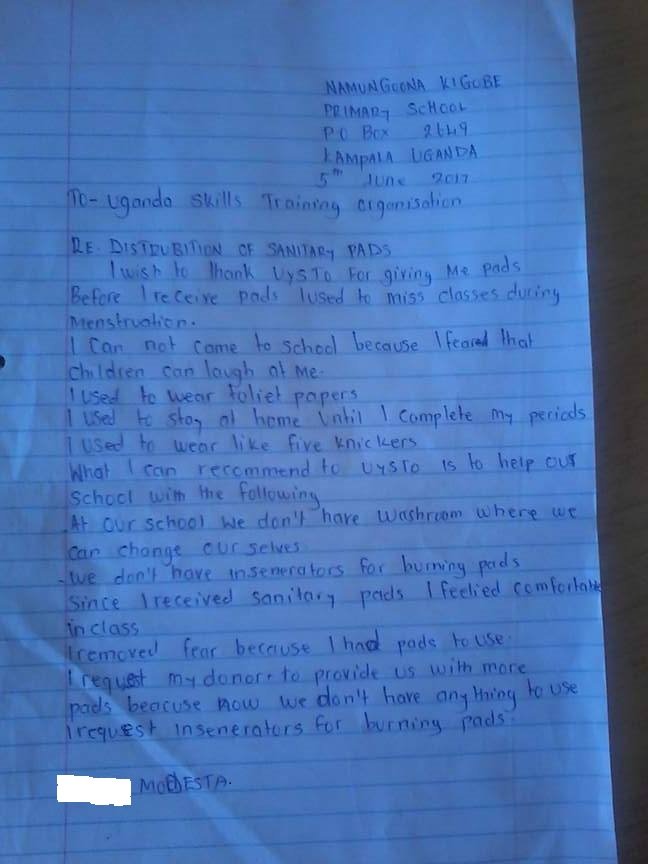 NAMUNGOONA KIGOBE
PRIMARY SCHOOL
P.O Box 2649
KAMPALA UGANDA
5th June 2017
TO- Uganda Skills Training organisation
RE. DISTRUBITION OF SANITARY PADS
I wish to thank UYSTO For giving Me pads
Before I receive pads I used to miss classes during
Menstruation.
I Can not come to school because I feared that
children can laugh at Me.
I used to wear toliet papers
I used to stay at home Until I Complete my periods
I used to wear like five knickers
What I can recommend to UYSTO is to help our
School with the following
At Our school We don't have Washroom where we
can change our selves
-we don't have insenerators for burning pads
Since I received sanitary pads I feelied comfortable
in class
I removed fear because I had pads to use.
I request my donor to provide us with more
pads beacuse now we don't have any thing to use
I request insenerators for burning pads.
MODESTA.